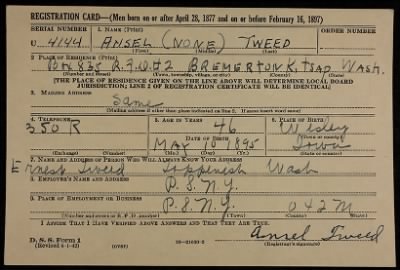 REGISTRATION CARD—(Men born on or after April 28, 1877 and on or before February 16, 1897)
SERIAL NUMBER 1. NAME (Print) ORDER NUMBER
U 4144 ANSEL (NONE) TWEED
(First) (Middle) (Last)
2. PLACE OF RESIDENCE (Print)
Box 835 R.F.D. #2 BREMERTON KITSAP WASH.
(Number and street) (Town, township, village, or city) (County) (State)
[THE PLACE OF RESIDENCE GIVEN ON THE LINE ABOVE WILL DETERMINE LOCAL BOARD
JURISDICTION; LINE 2 OF REGISTRATION CERTIFICATE WILL BE IDENTICAL]
3. MAILING ADDRESS
Same
[Mailing address if other than place indicated on line 2. If same insert word same]
4. TELEPHONE 5. AGE IN YEARS 6. PLACE OF BIRTH
350 R 46 Wesley
DATE OF BIRTH (Town or county)
MAY 10 1895 Iowa
(Exchange) (Number) (Mo.) (Day) (Yr.) (State or country)
7. NAME AND ADDRESS OF PERSON WHO WILL ALWAYS KNOW YOUR ADDRESS
Ernest Tweed Toppenish Wash
8. EMPLOYER'S NAME AND ADDRESS
P.S.N.Y.
9. PLACE OF EMPLOYMENT OR BUSINESS
P.S.N.Y. 042M
(Number and street or R. F. D. number) (Town) (County) (State)
I AFFIRM THAT I HAVE VERIFIED ABOVE ANSWERS AND THAT THEY ARE TRUE.
D. S. S. Form 1
(Revised 4-1-42) (over) Ansel Tweed
(Registrant's signature)